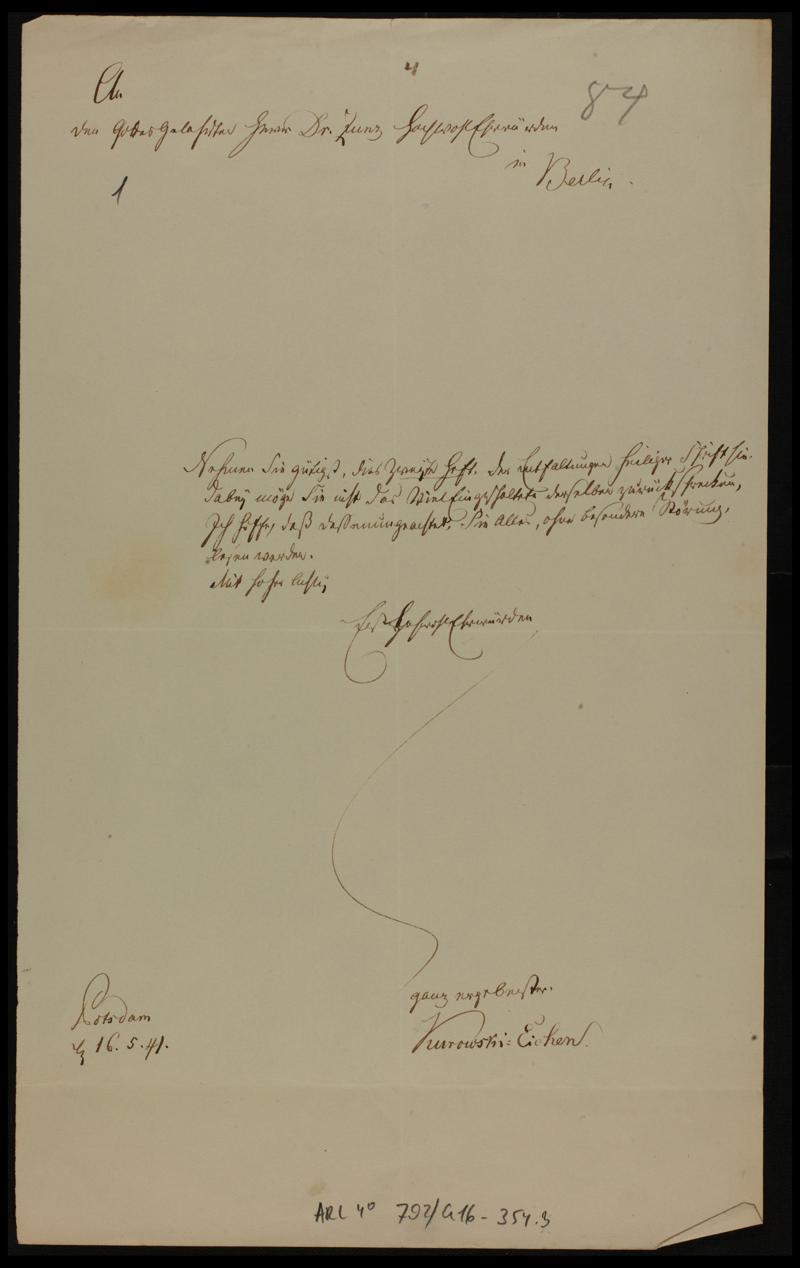 4
84
An
den Gottesgelehrten Herrn Dr. Zunz HochwohlEhrwürden
in
Berlin.
1
Nehmen Sie gütigst, dies zweyte Heft. der Entfaltungen heiliger Schrift hin.
Dabey möge Sie nicht das Vielfingeschaltete derselben zurückschrecken,
Ich hoffe, daß dessenungeachtet, Sie Alles, ohne besondere Störung,
lesen werden.
Mit hoher
Ew. HochwohlEhrwürden
ganz ergebenster.
Potsdam
16. 5. 41.
Kurowski=Eichen.
ARC 4° 792/G16-354.3